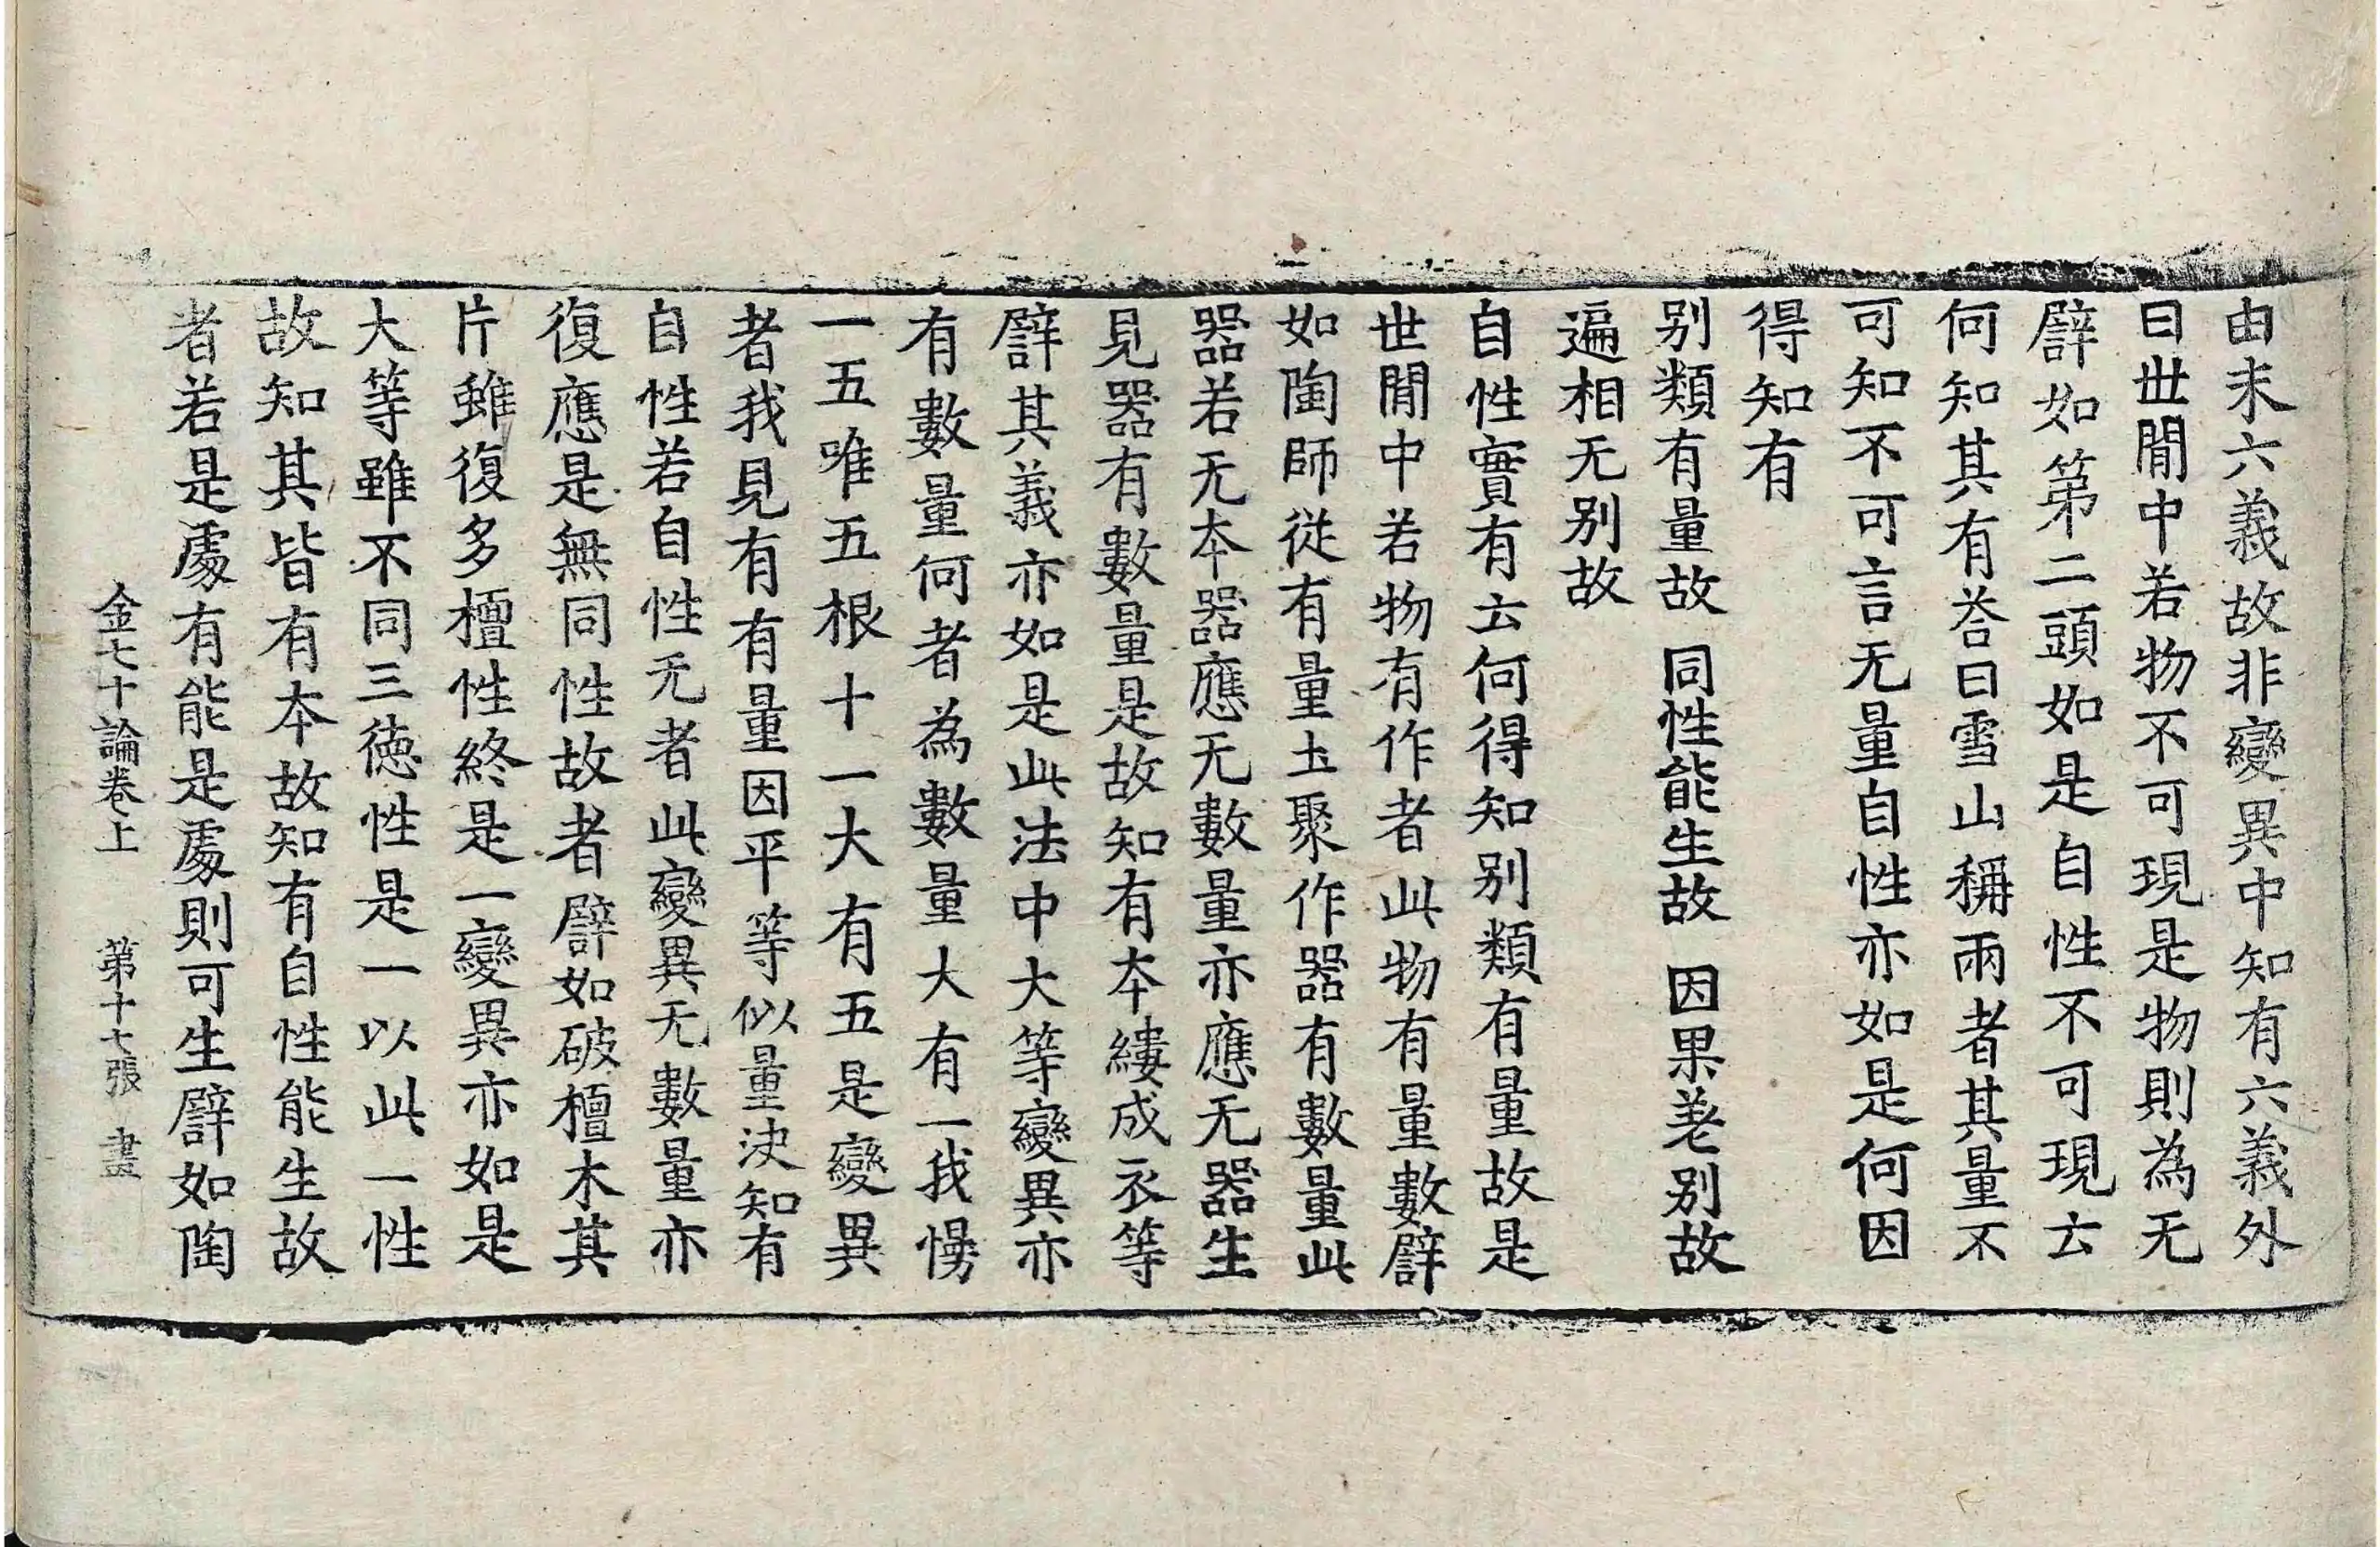 由末六義故非變異中知有六義外
曰世間中若物不可現是物則為无
譬如第二頭如是自性不可現云
何知其有荅曰雪山稱兩者其量不
可知不可言无量自性亦如是何因
得知有
別類有量故　同性能生故　因果差別故
遍相无別故
自性實有云何得知別類有量故是
世間中若物有作者此物有量數譬
如陶師從有量土聚作器有數量此
器若无本器應无數量亦應无器生
見器有數量是故知有本縷成衣等
譬其義亦如是此法中大等變異亦
有數量何者為數量大有一我慢有
一五唯五根十一大有五是變異
者我見有有量因平等似量決知有
自性若自性无者此變異无數量亦
復應是無同性故者譬如破檀木其
片雖復多檀性終是一變異亦如是
大等雖不同三德性是一以此一性
故知其皆有本故知有自性能生故
者若是處有能是處則可生譬如陶
金七十論卷上　第十七張　畫